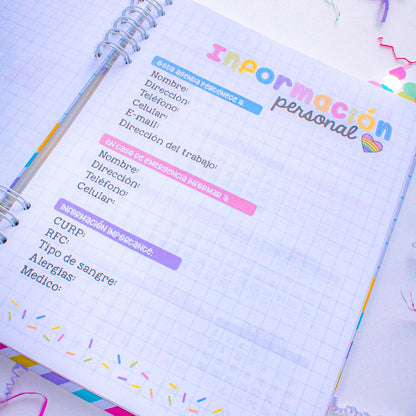 Información
personal
Esta agenda pertenece a:
Nombre:
Dirección:
Teléfono:
Celular:
E-mail:
Dirección del trabajo:
En caso de emergencia informar a:
Nombre:
Dirección:
Teléfono:
Celular:
Información importante:
CURP:
RFC:
Tipo de sangre:
Alergias:
Medico: